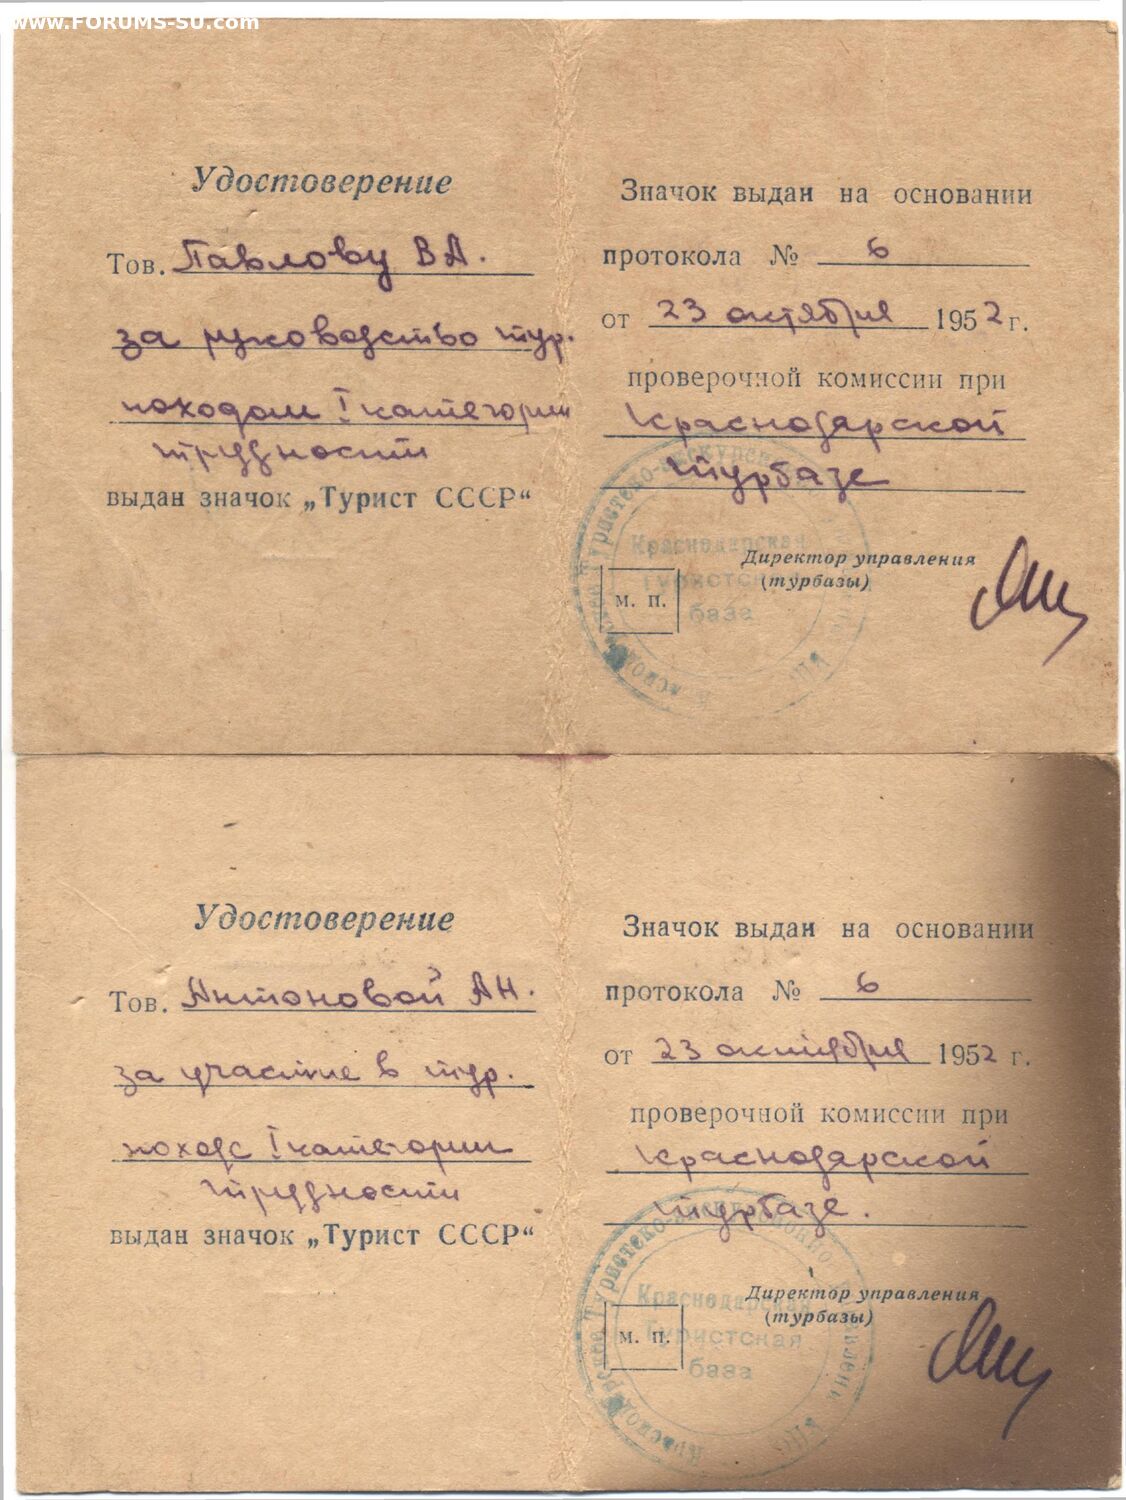 www.FORUMS-SU.com
Удостоверение
Тов. Павлову В А.
за руководство тур.
походом I категории
трудности
выдан значок „Турист СССР“
Значок выдан на основании
протокола № 6
от 23 октября 1952 г.
проверочной комиссии при
Краснодарской
турбазе
Директор управления
(турбазы)
м. п.
Краснодарская
Туристская
база
Удостоверение
Тов. Антоновой А Н.
за участие в тур.
походе I категории
трудности
выдан значок „Турист СССР“
Значок выдан на основании
протокола № 6
от 23 октября 1952 г.
проверочной комиссии при
Краснодарской
турбазе.
Директор управления
(турбазы)
м. п.
Краснодарская
Туристская
база